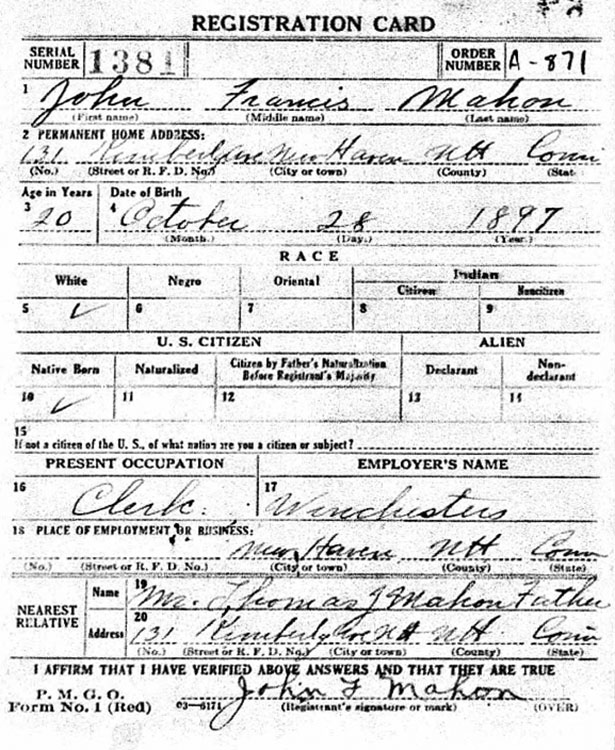 REGISTRATION CARD
SERIAL NUMBER 1381 ORDER NUMBER A-871
1 John Francis Mahon
(First name) (Middle name) (Last name)
2 PERMANENT HOME ADDRESS:
131 Kimberly Ave New Haven NH Conn
(No.) (Street or R. F. D. No.) (City or town) (County) (State
Age in Years Date of Birth
3 20 4 October 28 1897
(Month.) (Day.) (Year.)
RACE
White Negro Oriental Indian
Citizen Noncitizen
5 ✓ 6 7 8 9
U. S. CITIZEN ALIEN
Native Born Naturalized Citizen by Father's Naturalization Before Registrant's Majority Declarant Non-declarant
10 ✓ 11 12 13 14
15
If not a citizen of the U. S., of what nation are you a citizen or subject?
PRESENT OCCUPATION EMPLOYER'S NAME
16 Clerk. 17 Winchesters
18 PLACE OF EMPLOYMENT OR BUSINESS:
New Haven NH Conn
(No.) (Street or R. F. D. No.) (City or town) (County) (State)
NEAREST RELATIVE
Name 19 Mr. Thomas J Mahon Father
Address 20 131 Kimberly Ave NH NH Conn
(No.) (Street or R. F. D. No.) (City or town) (County) (State)
I AFFIRM THAT I HAVE VERIFIED ABOVE ANSWERS AND THAT THEY ARE TRUE
P. M. G. O.
Form No. 1 (Red) 03—6171 John F Mahon
(Registrant's signature or mark) (OVER)